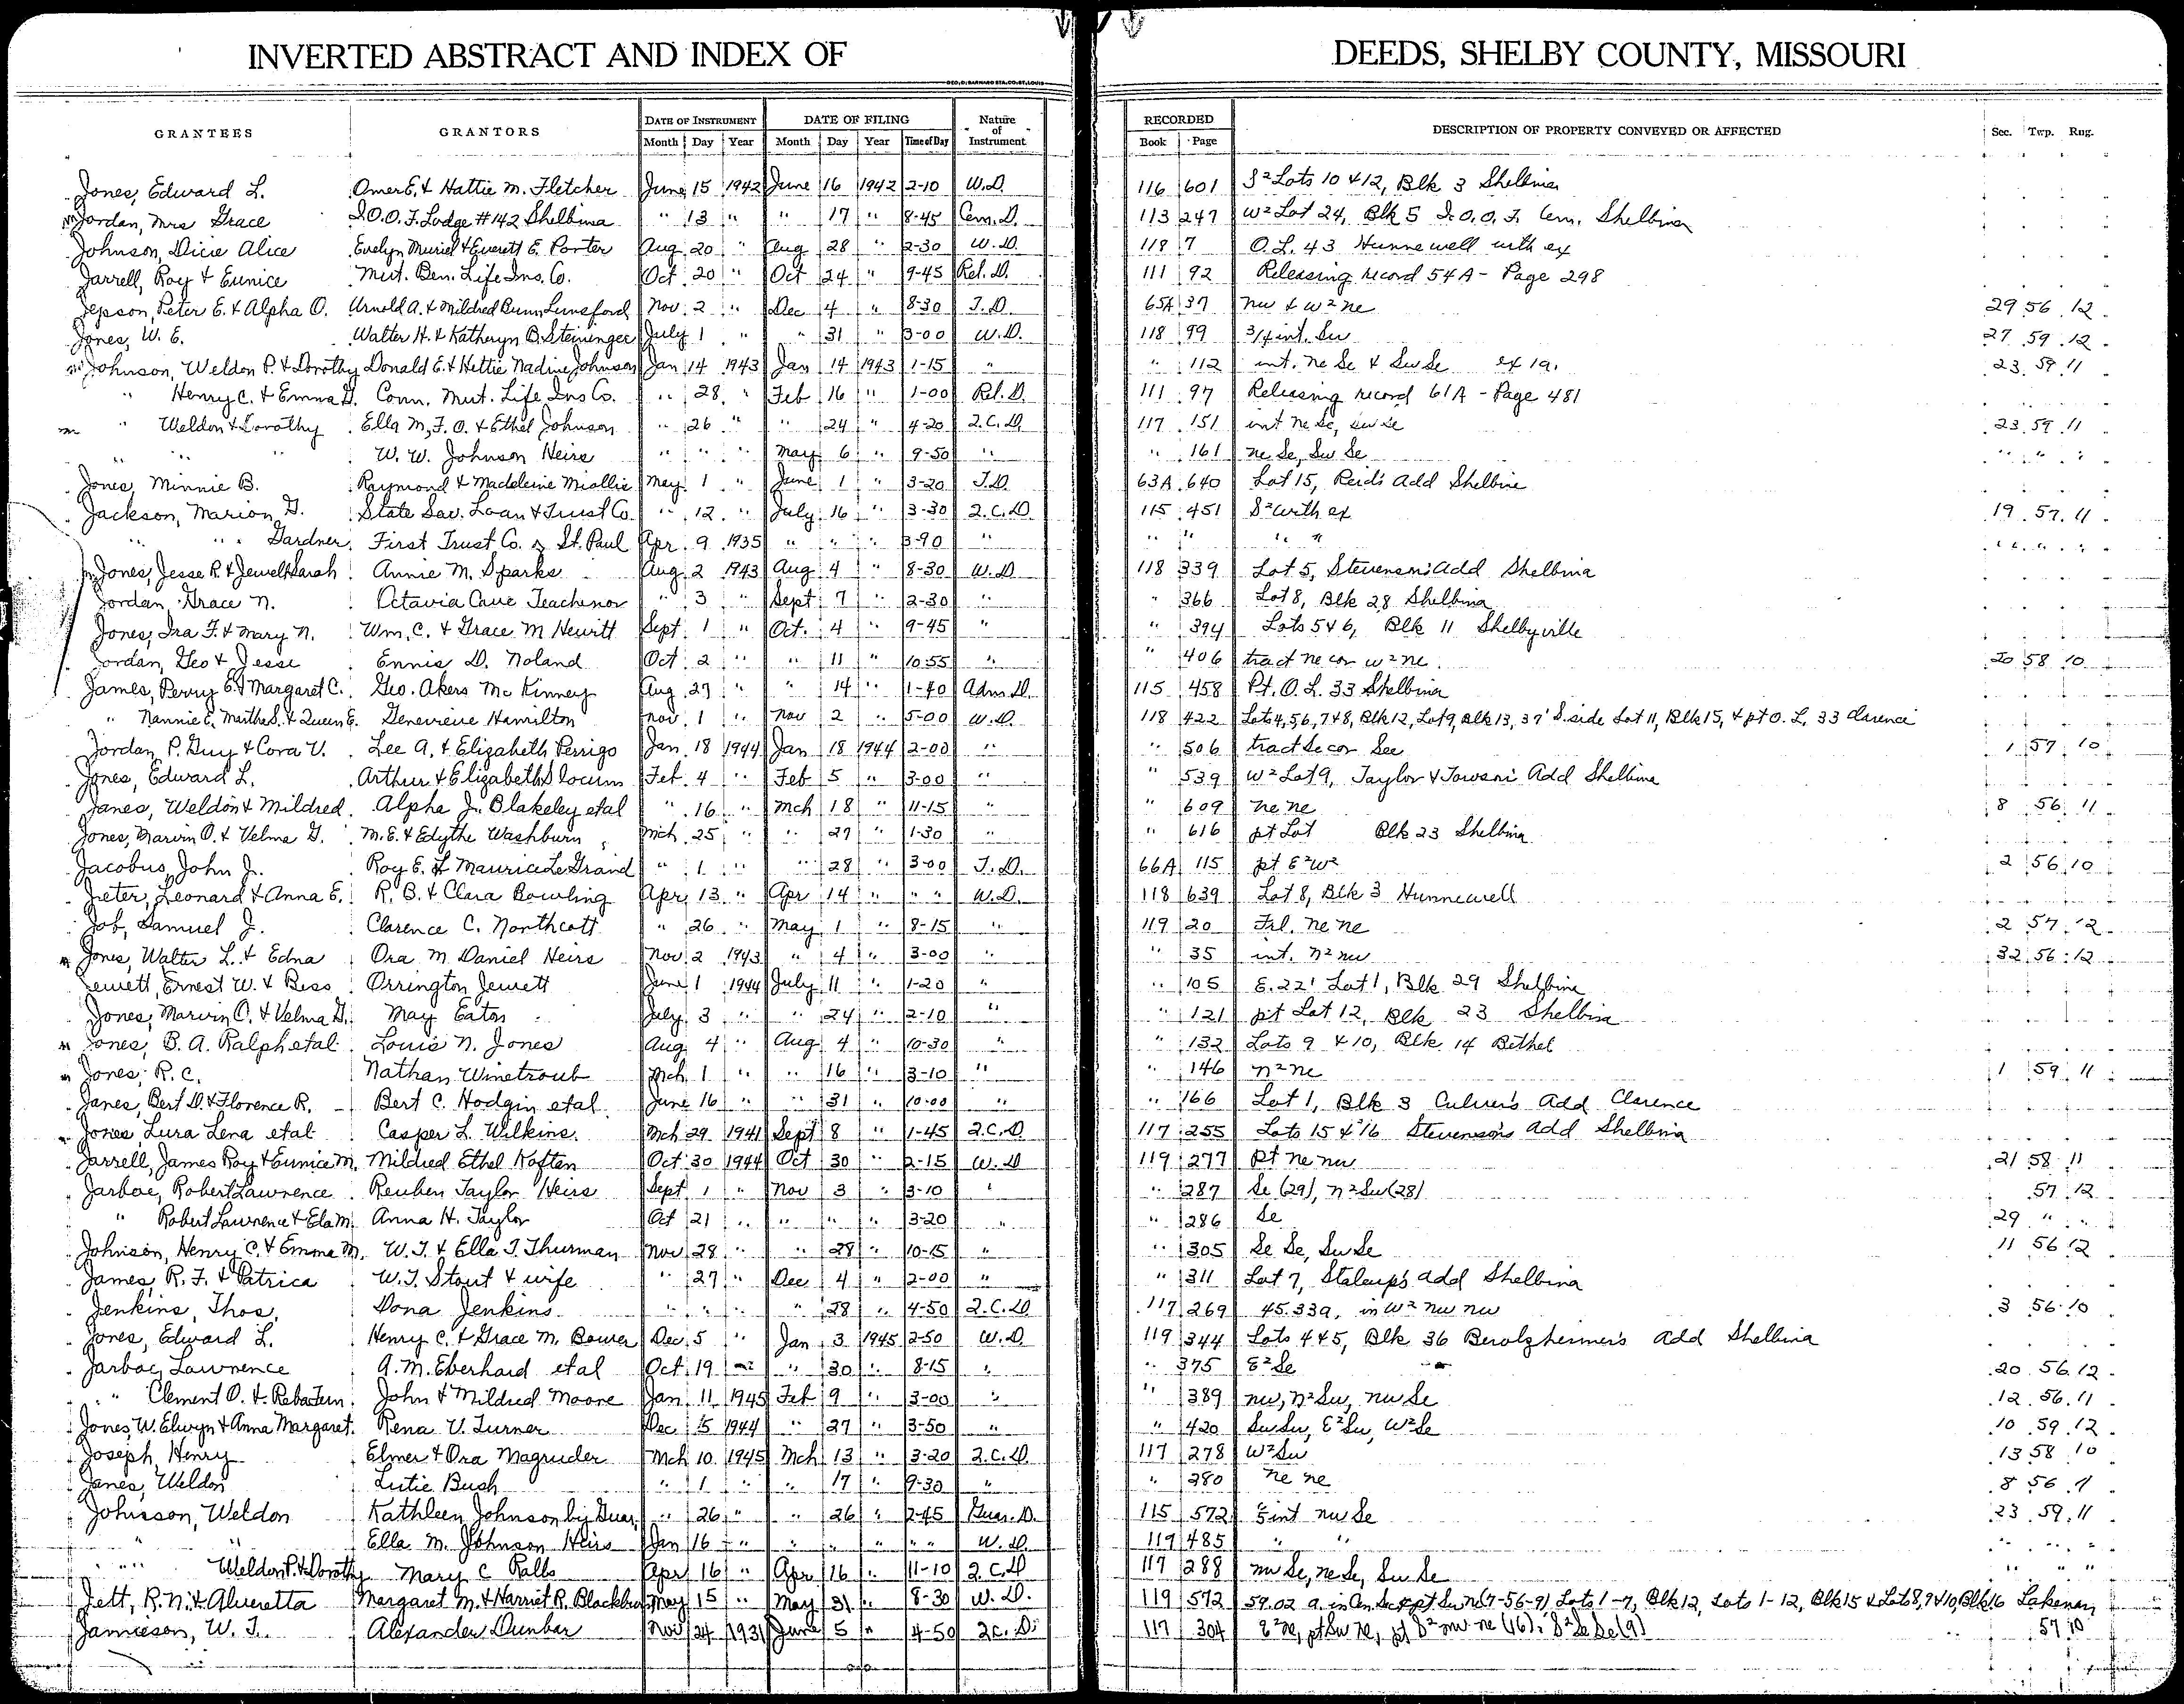 INVERTED ABSTRACT AND INDEX OF DEEDS, SHELBY COUNTY, MISSOURI
GEO. D. BARNARD STA. CO. ST. LOUIS
GRANTEES GRANTORS DATE OF INSTRUMENT DATE OF FILING Nature of Instrument RECORDED DESCRIPTION OF PROPERTY CONVEYED OR AFFECTED Sec. Twp. Rng.
Month Day Year Month Day Year Time of Day Book Page
Jones, Edward L. Omer E. & Hattie M. Fletcher June 15 1942 June 16 1942 2-10 W.D. 116 601 S² Lots 10 & 12, Blk 3 Shelbina
Jordan, Mrs Grace I.O.O.F. Lodge #142 Shelbina " 13 " " 17 " 8-45 Cem. D. 113 247 W² Lot 24, Blk 5 I.O.O.F. Cem. Shelbina
Johnson, Dicie Alice Evelyn Muriel & Everett E. Porter Aug 20 " Aug 28 " 2-30 W.D. 118 7 O.L. 43 Hunnewell with ex
Jarrell, Roy & Eunice Mut. Ben. Life Ins. Co. Oct 20 " Oct 24 " 9-45 Rel. D. 111 92 Releasing record 54A - Page 298
Jepson, Peter E. & Alpha O. Arnold A. & Mildred Bunn Lunsford Nov 2 " Dec 4 " 8-30 T.D. 65A 37 nw & w² ne 29 56 12
Jones, W. E. Walter H. & Katheryn B. Steininger July 1 " " 31 " 3-00 W.D. 118 99 3/4 int. Sw 27 59 12
Johnson, Weldon P. & Dorothy Donald E. & Hettie Nadine Johnson Jan 14 1943 Jan 14 1943 1-15 " " 112 int. ne Se & Sw Se ex 1a. 23 59 11
" Henry C. & Emma Conn. Mut. Life Ins Co. " 28 " Feb 16 " 1-00 Rel. D. 111 97 Releasing record 61A - Page 481
" " Weldon & Dorothy Ella M., F. O. & Ethel Johnson " 26 " " 24 " 4-20 2.C.D. 117 151 int ne Se, sw se 23 59 11
" " " W. W. Johnson Heirs " " " May 6 " 9-50 " " 161 ne Se, Sw Se " " "
Jones, Minnie B. Raymond & Madeleine Miallis May 1 " June 1 " 3-20 T.D. 63A 640 Lot 15, Reid's Add Shelbina
Jackson, Marion G. State Sav. Loan & Trust Co. " 12 " July 16 " 3-30 2.C.D. 115 451 S² with ex 19 57 11
" " Gardner First Trust Co. of St. Paul Apr. 9 1935 " " " 3-90 " " " " " " " "
Jones, Jesse R. & Jewell Sarah Annie M. Sparks Aug 2 1943 Aug 4 " 8-30 W.D. 118 339 Lot 5, Stevenson's Add Shelbina
Jordan, Grace N. Octavia Cave Teachenor " 3 " Sept 7 " 2-30 " " 366 Lot 8, Blk 28 Shelbina
Jones, Ira F. & Mary N. Wm. C. & Grace M Hewitt Sept 1 " Oct. 4 " 9-45 " " 394 Lots 5 & 6, Blk 11 Shelbyville
Jordan, Geo & Jesse Ennis D. Noland Oct 2 " " 11 " 10-55 " " 406 tract ne cor w² ne 20 58 10
James, Perry E. & Margaret C. Geo. Akers McKinney Aug 27 " " 14 " 1-40 Adm. D. 115 458 Pt. O.L. 33 Shelbina
" Nannie E. Martha S. & Queen E. Genevieve Hamilton Nov 1 " Nov 2 " 5-00 W.D. 118 422 Lots 4, 5, 6, 7 & 8, Blk 12, Lot 9, Blk 13, 37' S. side Lot 11, Blk 15, & pt O. L. 33 Clarence
Jordan, P. Guy & Cora V. Lee A. & Elizabeth Perrigo Jan 18 1944 Jan 18 1944 2-00 " " 506 tract Se cor Sec 1 57 10
Jones, Edward L. Arthur & Elizabeth Slocum Feb 4 " Feb 5 " 3-00 " " 539 W² Lot 9, Taylor & Towson's Add Shelbina
Janes, Weldon & Mildred Alpha J. Blakeley etal " 16 " Mch 18 " 11-15 " " 609 ne ne 8 56 11
Jones, Marvin O. & Velma G. M. E. & Edythe Washburn Mch 25 " " 27 " 1-30 " " 616 pt Lot Blk 23 Shelbina
Jacobus, John J. Roy E. & Maurice LeGrand " 1 " " 28 " 3-00 T.D. 66A 115 pt E²W² 2 56 10
Jeter, Leonard & Anna E. R. B. & Clara Bowling Apr 13 " Apr 14 " " " W.D. 118 639 Lot 8, Blk 3 Hunnewell
Job, Samuel J. Clarence C. Northcott " 26 " May 1 " 8-15 " 119 20 Frl. ne ne 2 57 12
Jones, Walter L. & Edna Ora M Daniel Heirs Nov 2 1943 " 4 " 3-00 " " 35 int. N² nw 32 56 12
Jewett, Ernest W. & Bess Orrington Jewett June 1 1944 July 11 " 1-20 " " 105 E. 22' Lot 1, Blk 29 Shelbina
Jones, Marvin O. & Velma G. May Eaton July 3 " " 24 " 2-10 " " 121 pt Lot 12, Blk 23 Shelbina
Jones, B. A. Ralph etal Louis N. Jones Aug 4 " Aug 4 " 10-30 " " 132 Lots 9 & 10, Blk 14 Bethel
Jones, R. C. Nathan Winetroub Mch 1 " " 16 " 3-10 " " 146 N² ne 1 59 11
Janes, Bert D. & Florence R. Bert C. Hodgin etal June 16 " " 31 " 10-00 " " 166 Lot 1, Blk 3 Culver's Add Clarence
Jones, Lura Lena etal Casper L. Wilkins Mch 29 1941 Sept 8 " 1-45 2.C.D. 117 255 Lots 15 & 16 Stevenson's Add Shelbina
Jarrell, James Roy & Eunice M. Mildred Ethel Koften Oct 30 1944 Oct 30 " 2-15 W.D 119 277 pt ne nw 21 58 11
Jarboe, Robert Lawrence Reuben Taylor Heirs Sept 1 " Nov 3 " 3-10 " " 287 Se (29), N² Sw (28) 57 12
" Robert Lawrence & Ela M. Anna H. Taylor Oct 21 " " " " 3-20 " " 286 Se 29 " "
Johnson, Henry C. & Emma M. W. T. & Ella T. Thurman Nov 28 " " 28 " 10-15 " " 305 Se Se, Sw Se 11 56 12
James, R. F. & Patrica W. T. Stout & wife " 27 " Dec 4 " 2-00 " " 311 Lot 7, Stalcup's Add Shelbina
Jenkins, Thos. Dona Jenkins " " " " 28 " 4-50 2.C.D. 117 269 45.33a. in W² nw nw 3 56 10
Jones, Edward L. Henry C. & Grace M. Bower Dec 5 " Jan 3 1945 2-50 W.D. 119 344 Lots 4 & 5, Blk 36 Berolzheimer's Add Shelbina
Jarboe, Lawrence A. M. Eberhard etal Oct 19 " " 30 " 8-15 " " 375 E² Se 20 56 12
" Clement O. & Reba Fern John & Mildred Moore Jan 11 1945 Feb 9 " 3-00 " " 389 nw, N² Sw, nw Se 12 56 11
Jones, W. Elwyn & Anna Margaret Rena V. Turner Dec 15 1944 " 27 " 3-50 " " 420 Sw Sw, E² Sw, W² Se 10 59 12
Joseph, Henry Elmer & Ora Magruder Mch 10 1945 Mch 13 " 3-20 2.C.D. 117 278 W² Sw 13 58 10
Janes, Weldon Lutie Bush " 1 " " 17 " 9-30 " " 280 ne ne 8 56 11
Johnson, Weldon Kathleen Johnson by Guar. " 26 " " 26 " 2-45 Guar. D. 115 572 int nw Se 23 59 11
" " Ella M. Johnson Heirs Jan 16 " " " " " " W.D. 119 485 " " " " "
" " Weldon P. & Dorothy Mary C Ralls Apr 16 " Apr 16 " 11-10 2.C.D 117 288 nw Se, ne Se, Sw Se " " "
Jett, R. N. & Alveretta Margaret M. & Harriet R. May 15 " May 31 " 8-30 W.D. 119 572 59.02 a. in Sw ne (7-56-9) Lots 1-7, Blk 12, Lots 1-12, Blk 15 & Lots 8, 9 & 10, Blk 16 Lakenan
Jamieson, W. T. Alexander Dunbar Nov 24 1931 June 5 " 4-50 2C.D. 117 304 E² ne, pt Sw ne, pt S² nw ne (16), S² Se Se (9) 57 10